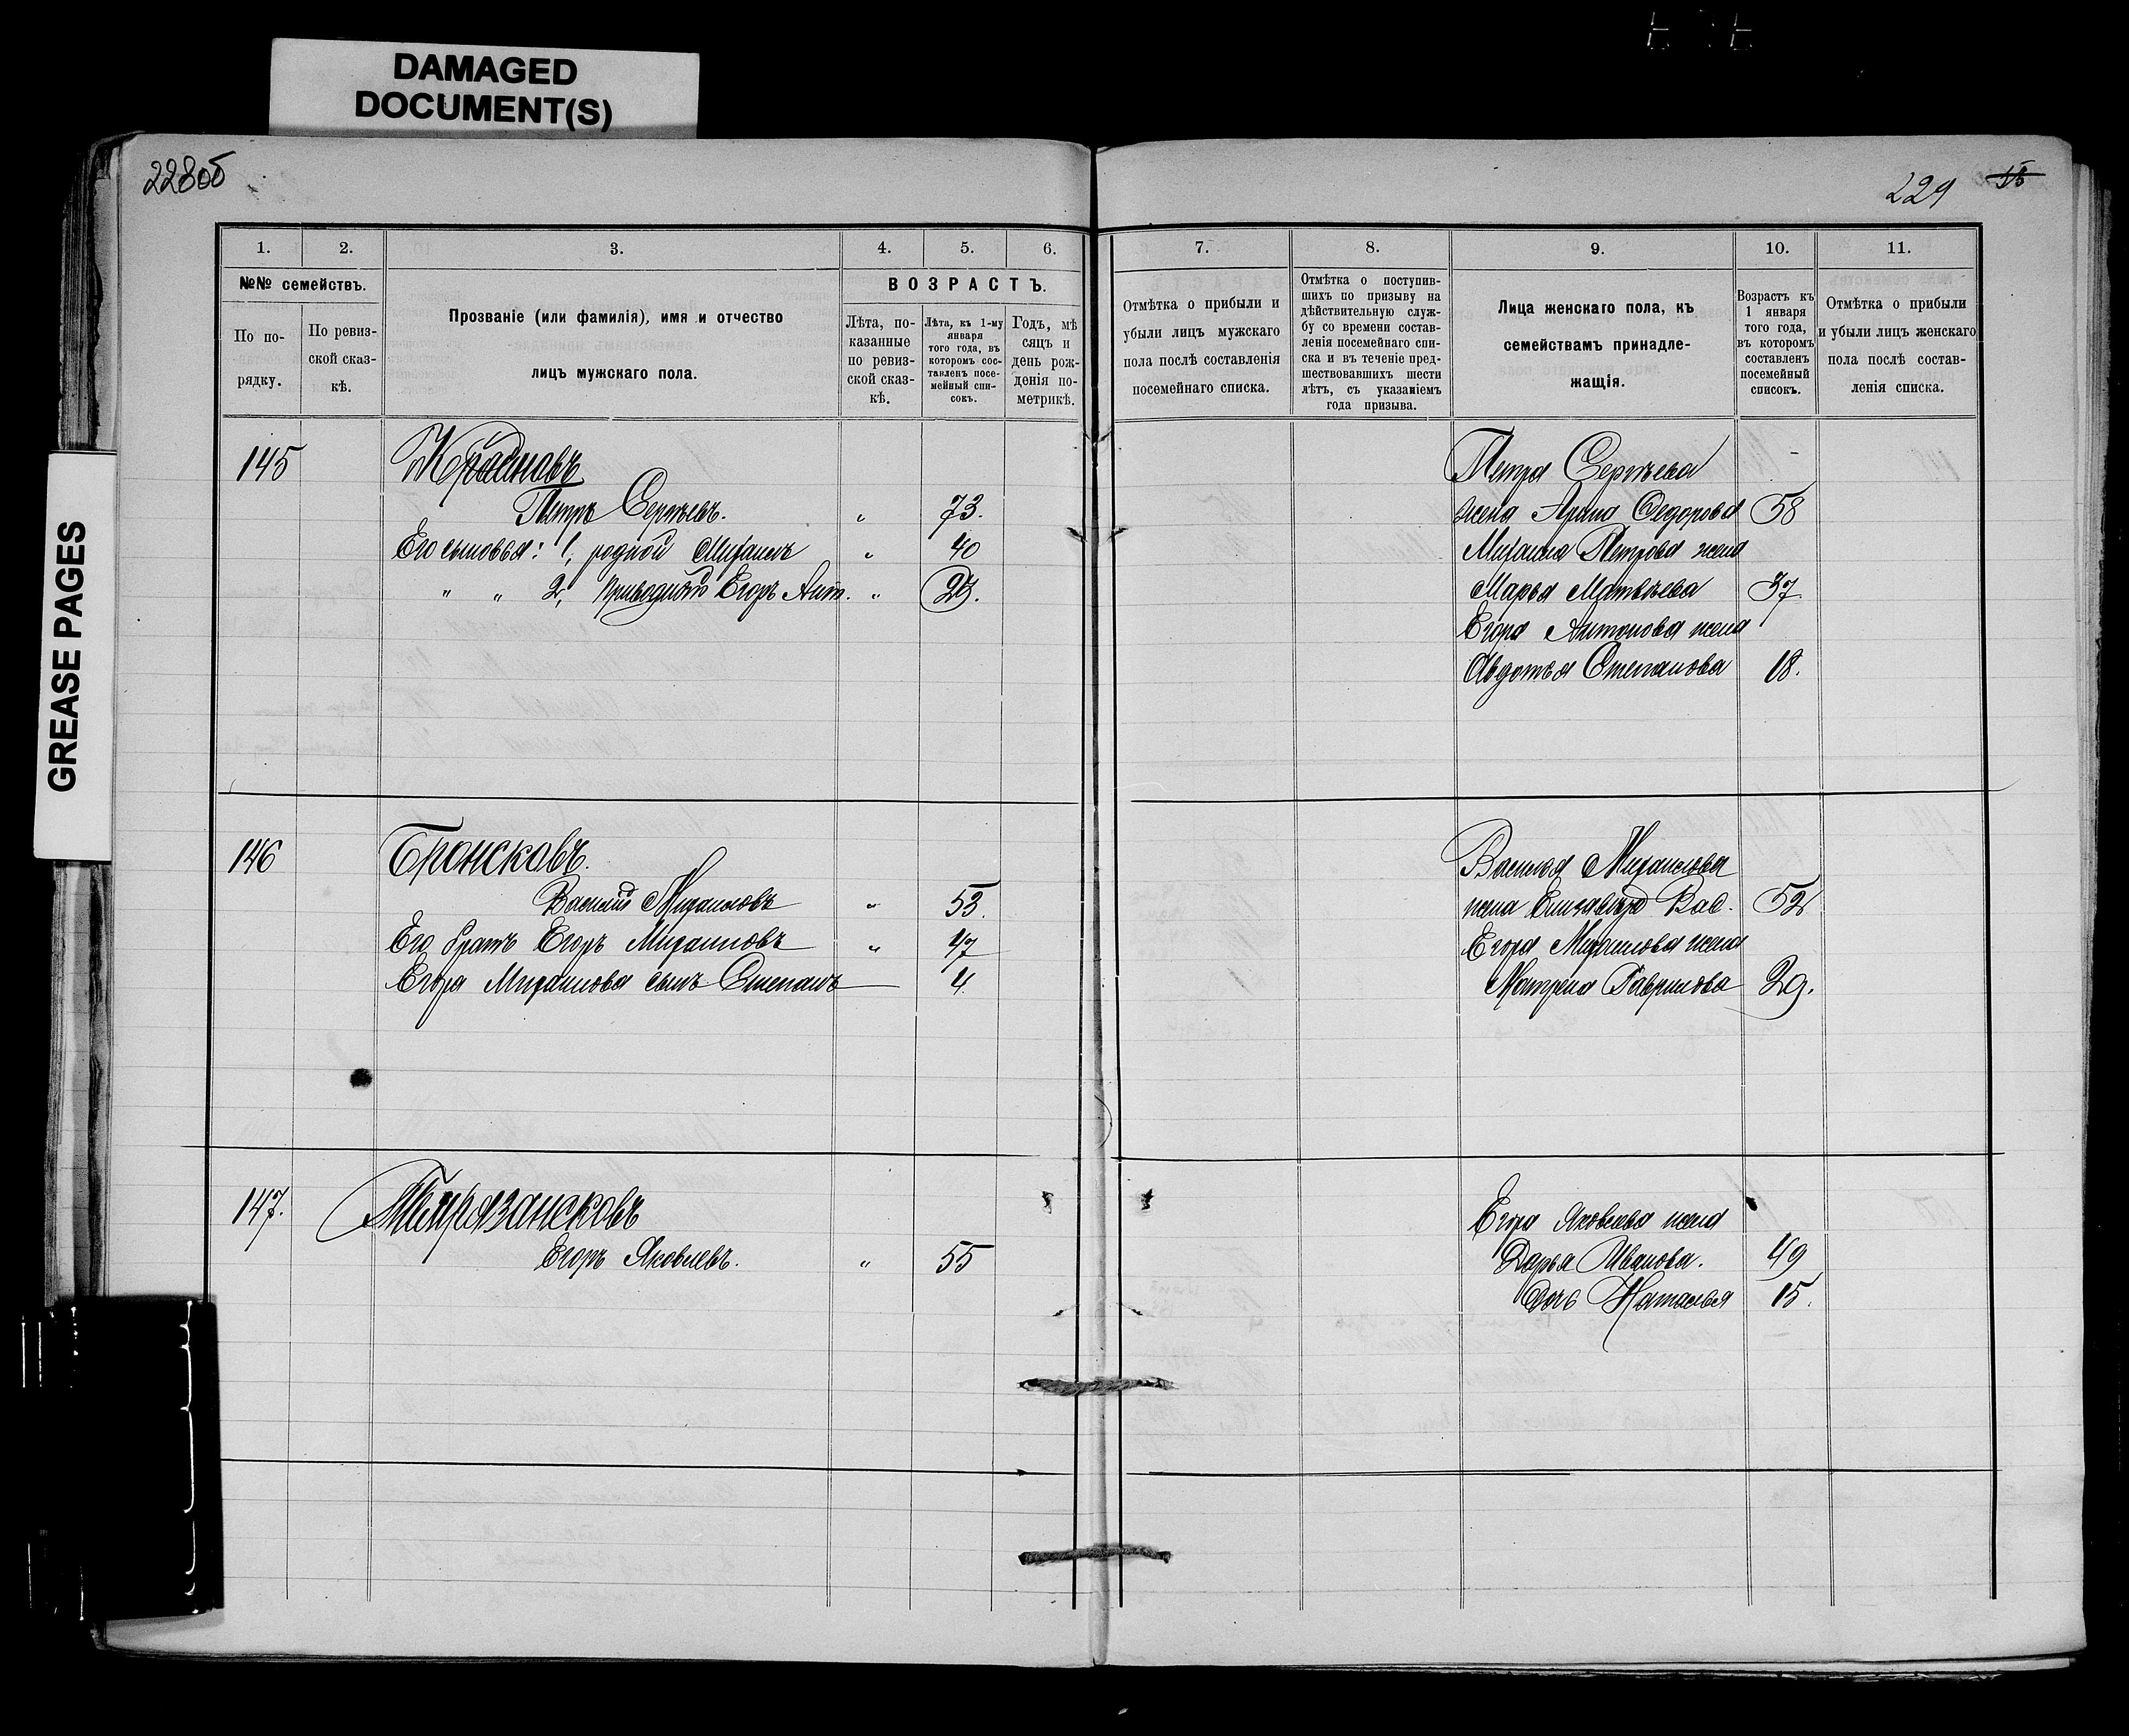 DAMAGED
DOCUMENT(S)
GREASE PAGES
228об
229
1.
2.
3.
4.
5.
6.
№№ семействъ.
По по-
рядку.
По ревиз-
ской сказ-
кѣ.
Прозваніе (или фамилія), имя и отчество
лицъ мужскаго пола.
ВОЗРАСТЪ.
Лѣта, по-
казанные
по ревиз-
ской сказ-
кѣ.
Лѣта, къ 1-му
января
того года, въ
которомъ сос-
тавленъ посе-
мейный спи-
сокъ.
Годъ, мѣ
сяцъ и
день рож-
денія по-
метрикѣ.
7.
8.
9.
10.
11.
Отмѣтка о прибыли и
убыли лицъ мужскаго
пола послѣ составленія
посемейнаго списка.
Отмѣтка о поступив-
шихъ по призыву на
дѣйствительную служ-
бу со времени состав-
ленія посемейнаго спи-
ска и въ теченіе пред-
шествовавшихъ шести
лѣтъ, съ указаніемъ
года призыва.
Лица женскаго пола, къ
семействамъ принадле-
жащія.
Возрастъ къ
1 января
того года,
въ которомъ
составленъ
посемейный
списокъ.
Отмѣтка о прибыли
и убыли лицъ женскаго
пола послѣ состав-
ленія списка.
145
Петръ Сергѣевъ. " 73.
Его сыновья: 1, родной Михаилъ " 40
" " 2, Приводный Егоръ Ант. "
Петра Сергѣева
жена Арина Федорова 58
Михаила Петрова жена
Марья Матвѣева 37
Егора Антонова жена
Авдотья Степанова 18.
146 Бронсковъ.
Василій Михаиловъ " 53.
Его братъ Егоръ Михаиловъ " 47
Егора Михаилова сынъ Степанъ 4
Василья Михаилова
жена Елизавета Вас. 52
Егора Михаилова жена
Матрена Гаврилова 29.
147.
Егоръ Яковлевъ. " 55
Егора Яковлева жена
Дарья Иванова. 49
Дочь Наталья 15.